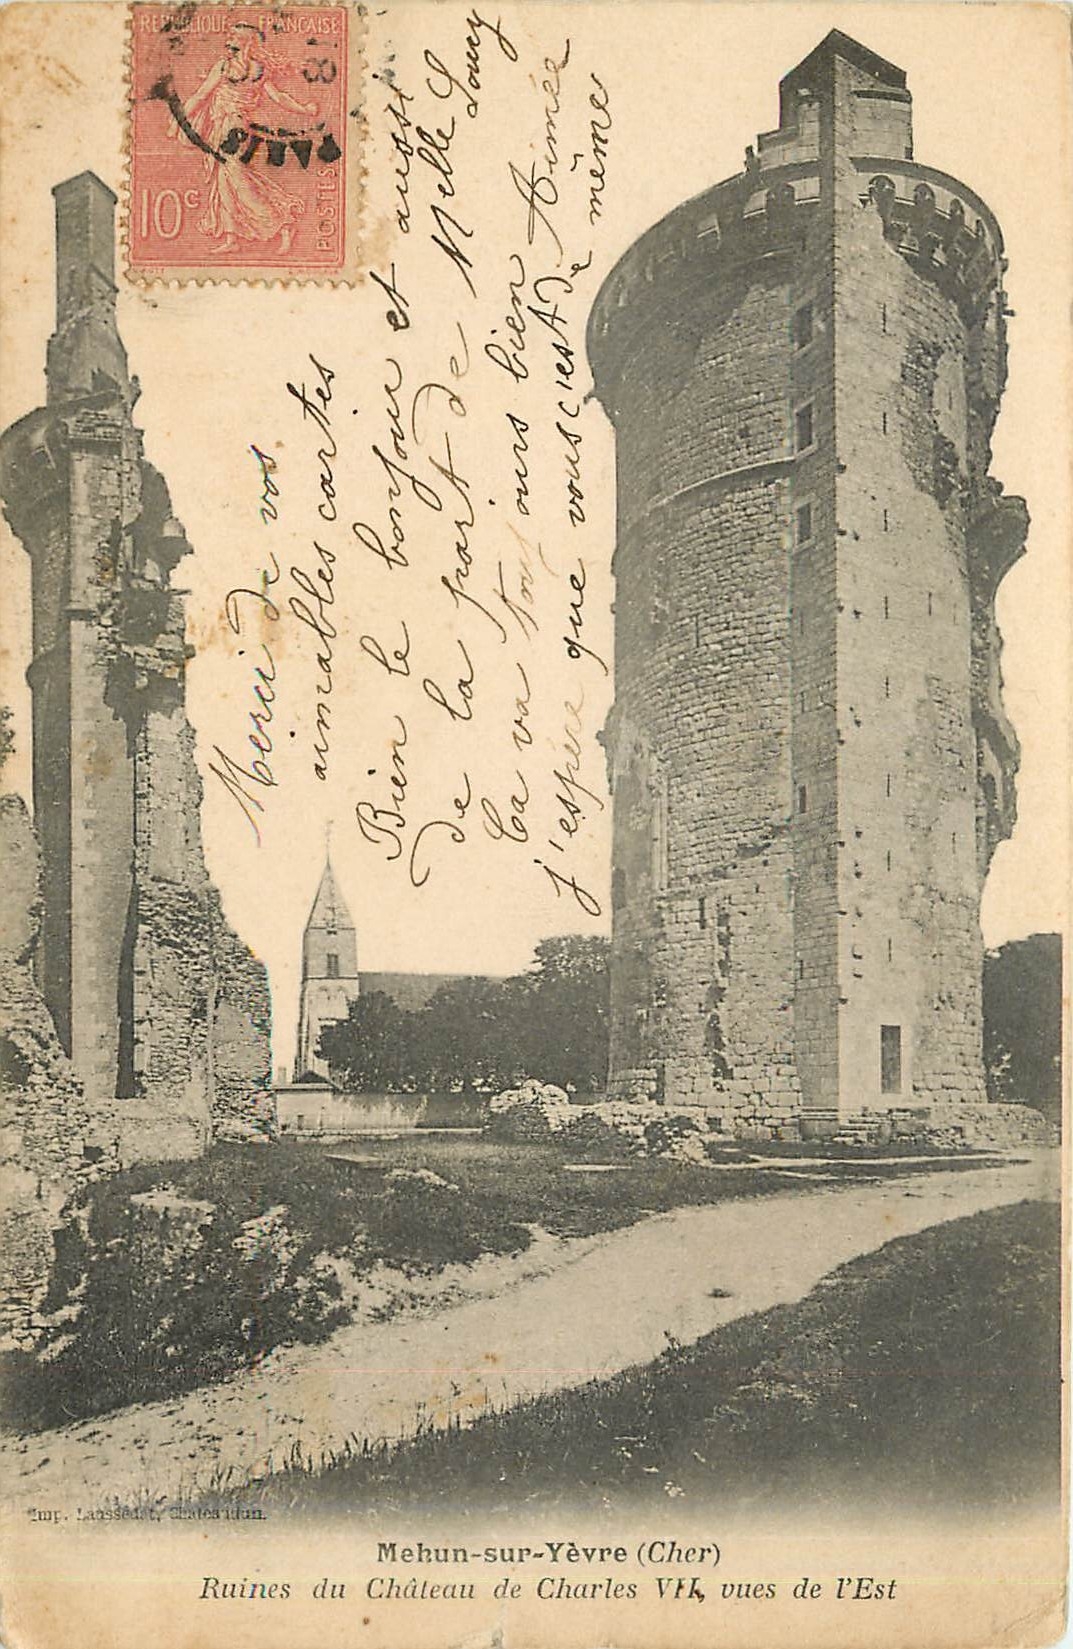 REPUBLIQUE FRANCAISE
10c
POSTES
PARIS
Merci de vos
aimables cartes
Bien le bonjour et aussi
de la part de Melle Loucy
Ca va toujours bien Aimée
j'espère que vous c'est de même
Imp. Laussedat, Chateaudun.
Mehun-sur-Yèvre (Cher)
Ruines du Château de Charles VII, vues de l'Est